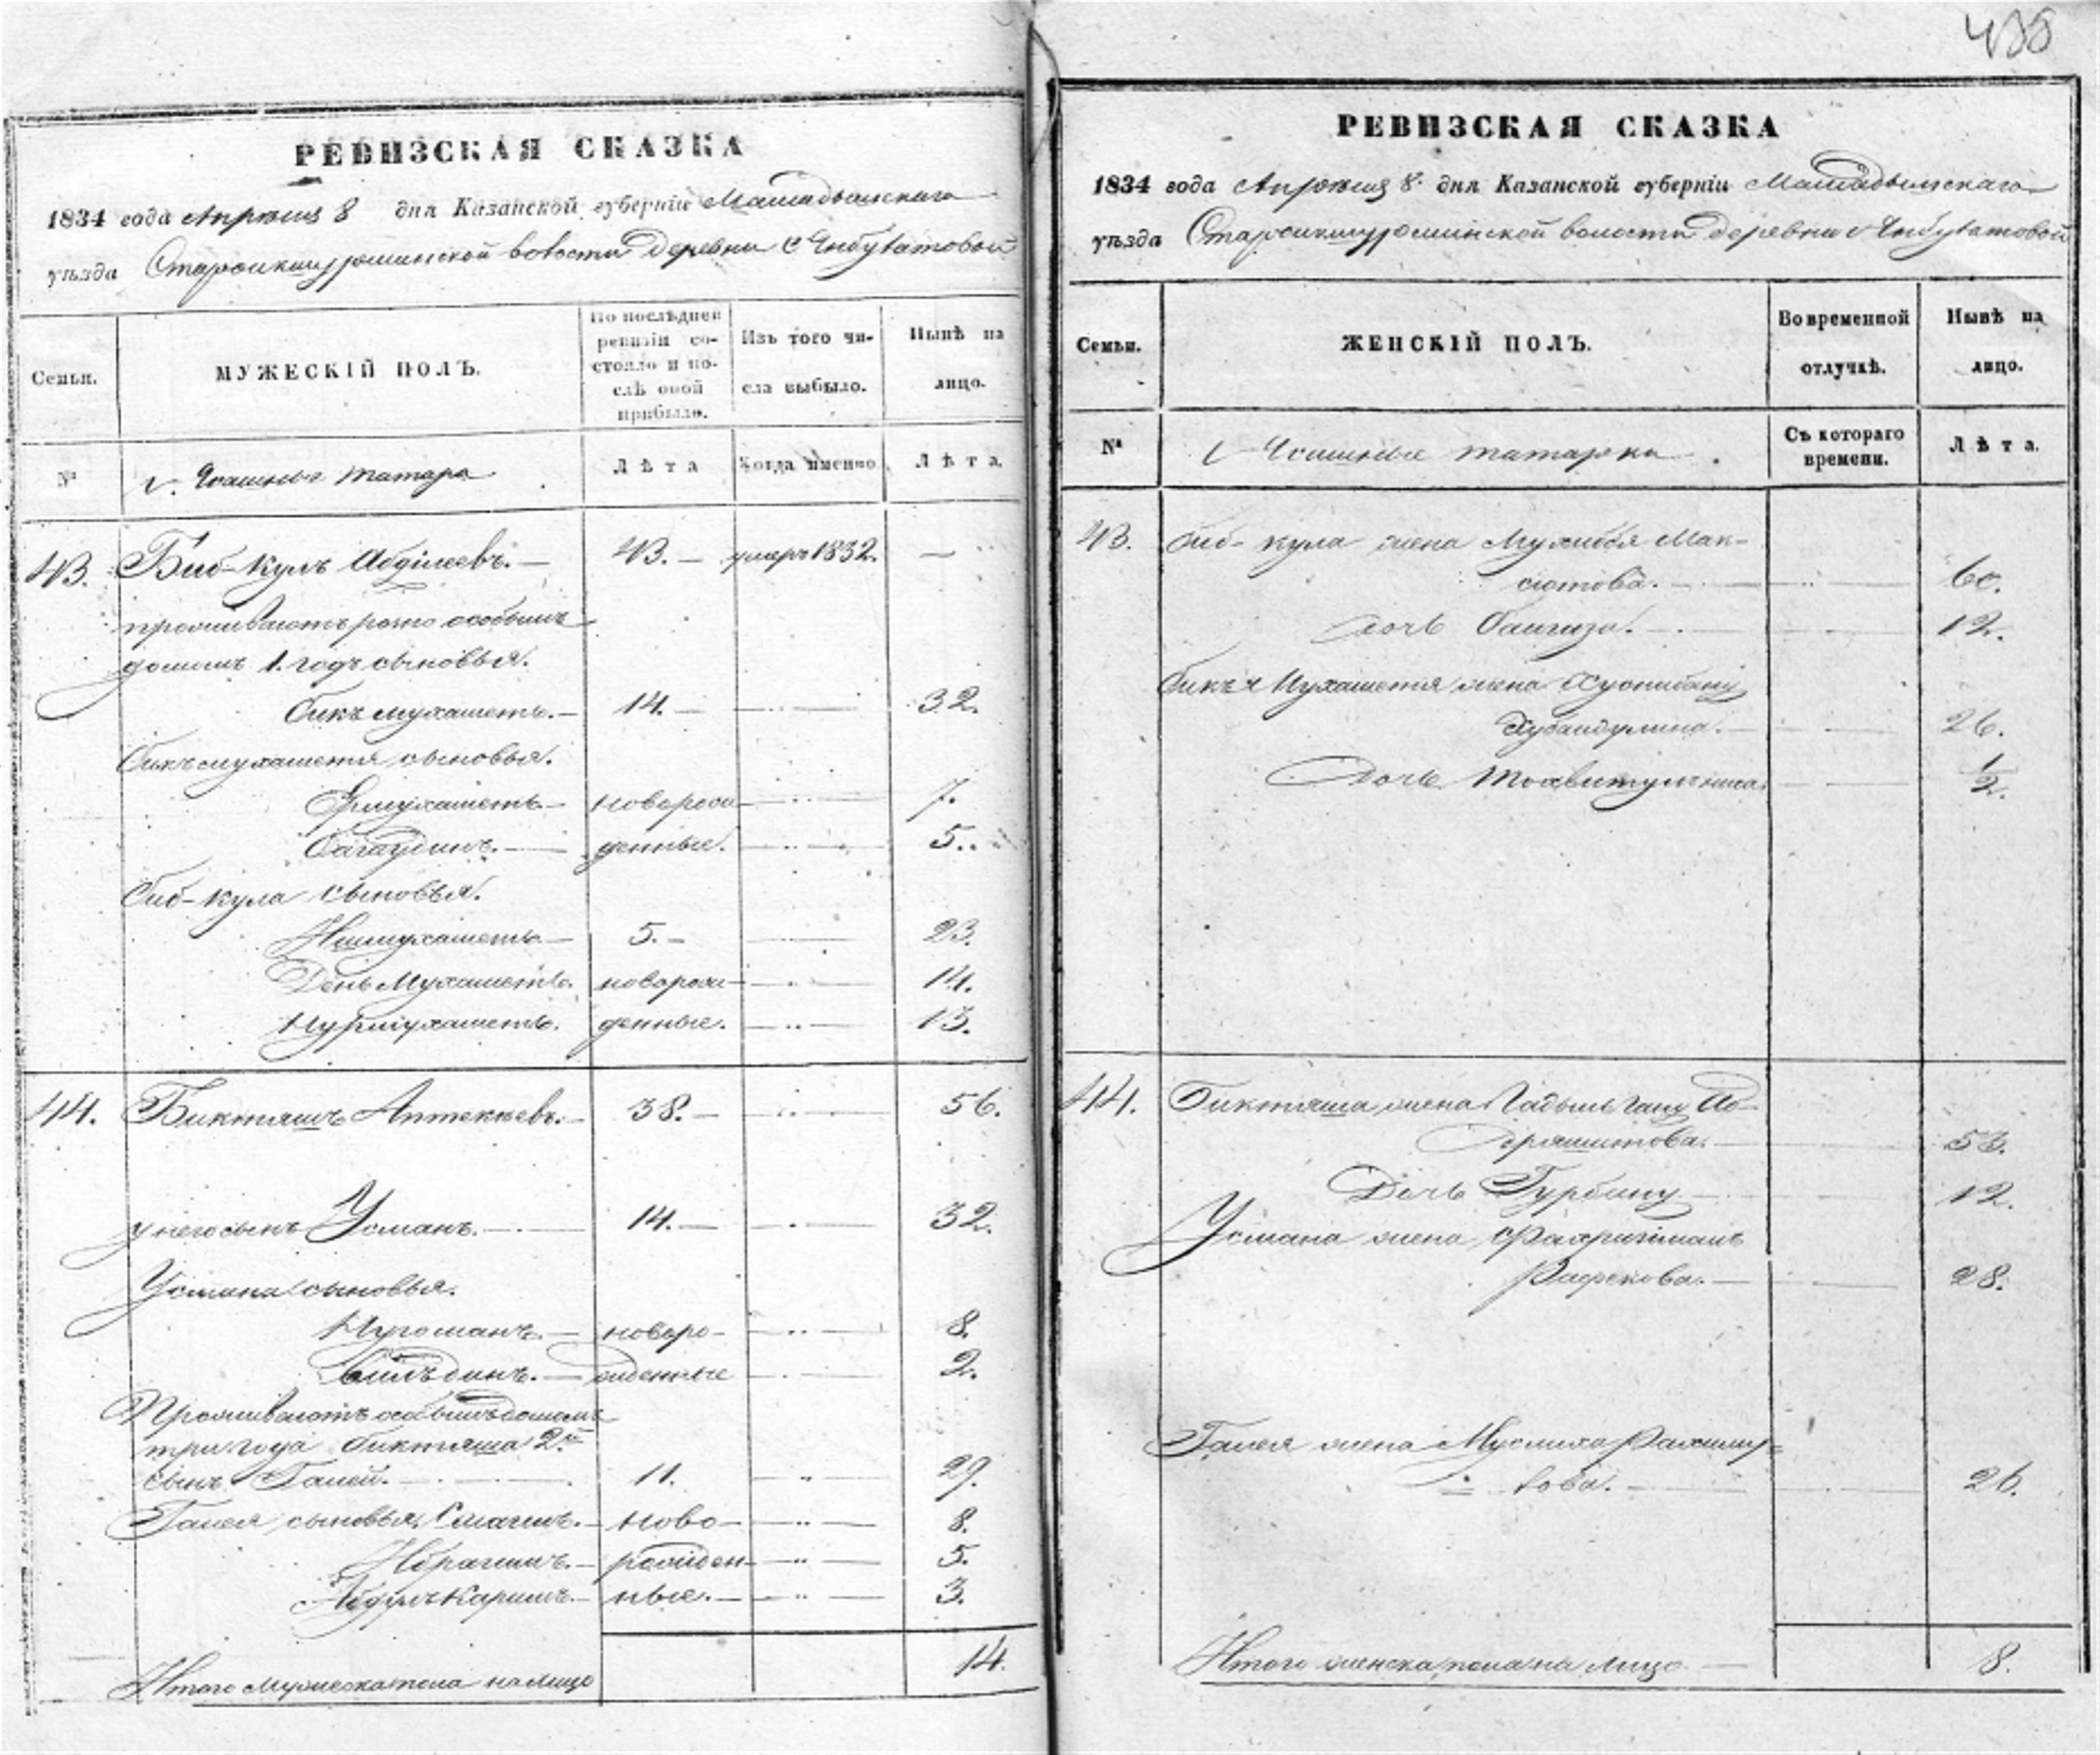 РЕВИЗСКАЯ СКАЗКА
1834 года Апрѣля 8 дня Казанской губерніи Мамадышскаго
уѣзда Старокишурминской волости деревни Янбулатовой
Семьи.
МУЖЕСКІЙ ПОЛЪ.
По послѣдней ревизіи состояло и послѣ оной прибыло.
Изъ того числа выбыло.
Нынѣ на лицо.
№
Ясашные татара
Лѣта
Когда именно
Лѣта.
43. Биб-Кулъ Абділеевъ. 43. умеръ 1832. —
проживаютъ розно особымъ
домомъ 1. годъ сыновья.
Бикъ мухаметь. 14. 32.
Бикъмухаметя сыновья.
Ермухаметь новорож- 7.
Багаудинъ. денные. 5.
Биб-кула сыновья.
Нишмухаметь 5. 23.
День Мухаметь. новорож- 14.
Нурмухаметь. денные. 13.
44. Бикташъ Аптекѣевъ. 38. 56.
у него сынъ Усманъ. 14. 32.
Усмана сыновья.
Нугоманъ. новоро- 8.
жденные 2.
Проживаютъ особымъ домомъ
три года бикташа 2й
сынъ Галей. 11. 29.
Галея сыновья. Смагилъ. ново- 8.
Ибрагимъ. рожден- 5.
Абдулъ Каримъ. ные. 3.
Итого мужеска пола на лицо 14.
438
РЕВИЗСКАЯ СКАЗКА
1834 года Апрѣля 8. дня Казанской губерніи Мамадышскаго
уѣзда Старокишурминской волости деревни Янбулатовой
Семьи.
ЖЕНСКІЙ ПОЛЪ.
Во временной отлучкѣ.
Нынѣ на лицо.
№
Ясашные татарки.
Съ котораго времени.
Лѣта.
43. Биб-кула жена Мухибья Мак-
сютова. 60.
дочь Бангиза. 12.
Бикъ Мухаметя жена Хуснибану
Хубайдулина. 26.
Дочь 1/2.
44. Бикташа жена Аб-
дряшитова. 53.
Дочь Гурбану 12.
Усмана жена Фахриямалъ
Рафекова. 28.
Галея жена Муслиха Рахиму-
лова. 26.
Итого женска пола на лицо 8.